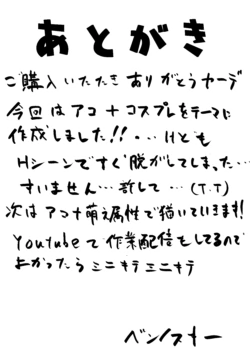 あとがき
ご購入いただき ありがとうヤーデ
今回はアコ+コスプレをテーマに
作成しました!!・・・けども
Hシーンですぐ脱がしてしまった…
すいません…許して…(T.T)
次はアコ+萌え属性で描いていきます!
Youtubeで作業配信もしてるので
よかったらミニキテミニキテ